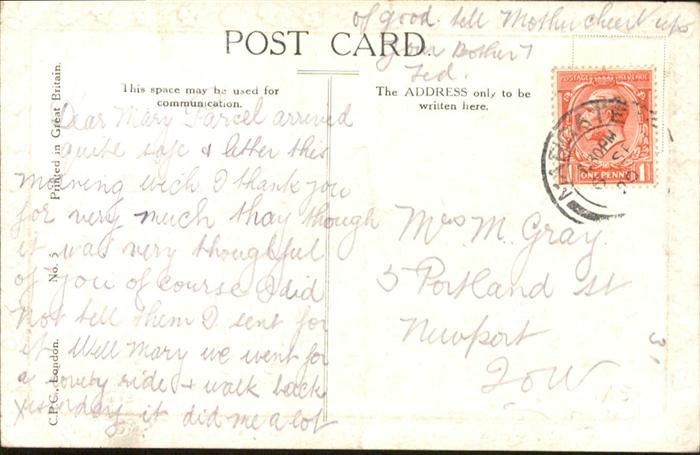 of good. tell Mother cheer up
your Bother
Ted.
POST CARD.
This space may be used for
communication.
The ADDRESS only to be
written here.
POSTAGE REVENUE
1 ONE PENNY 1
MARGATE
Dear Mary Parcel arrived
quite safe & letter this
morning wich I thank you
for very much thay though
it was very thoughful
of you of course I did
Not tell them I sent for
it Well Mary we went for
a lovely ride & walk back
yesterday it did me a lot
Mrs M. Gray.
5 Portland St
Newport
I O W
Printed in Great Britain.
No. 5
C.P.C., London.